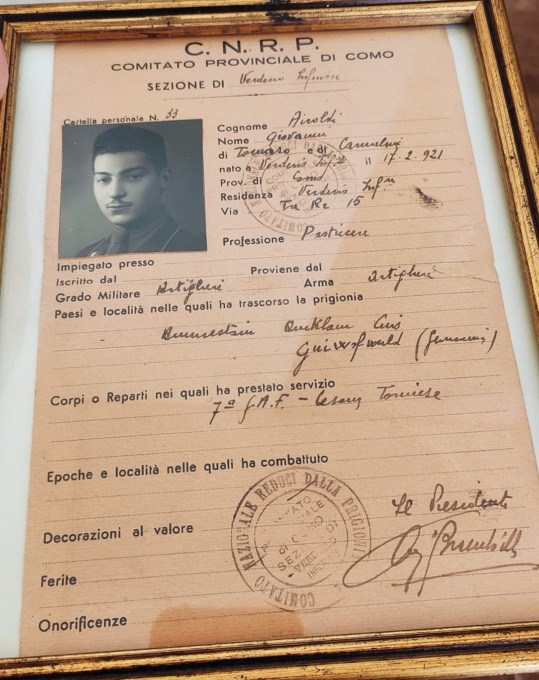 C. N. R. P.
COMITATO PROVINCIALE DI COMO
SEZIONE DI Verderio Inferiore
Cartella personale N. 33
Cognome Airoldi
Nome Giovanni
di Tomaso e di
nato a Verderio Inf.re il 17.2.921
Prov. di Como
Residenza Verderio Inf.re
Via Re 15
Professione
Impiegato presso
Iscritto dal Proviene dal
Grado Militare Artigliere Arma Artiglieri
Paesi e località nelle quali ha trascorso la prigionia
(Germania)
Corpi o Reparti nei quali ha prestato servizio
7ª G.A.F. - Cesana Torinese
Epoche e località nelle quali ha combattuto
Decorazioni al valore
Il Presidente
Ferite
Onorificenze
COMITATO NAZIONALE REDUCI DALLA PRIGIONIA